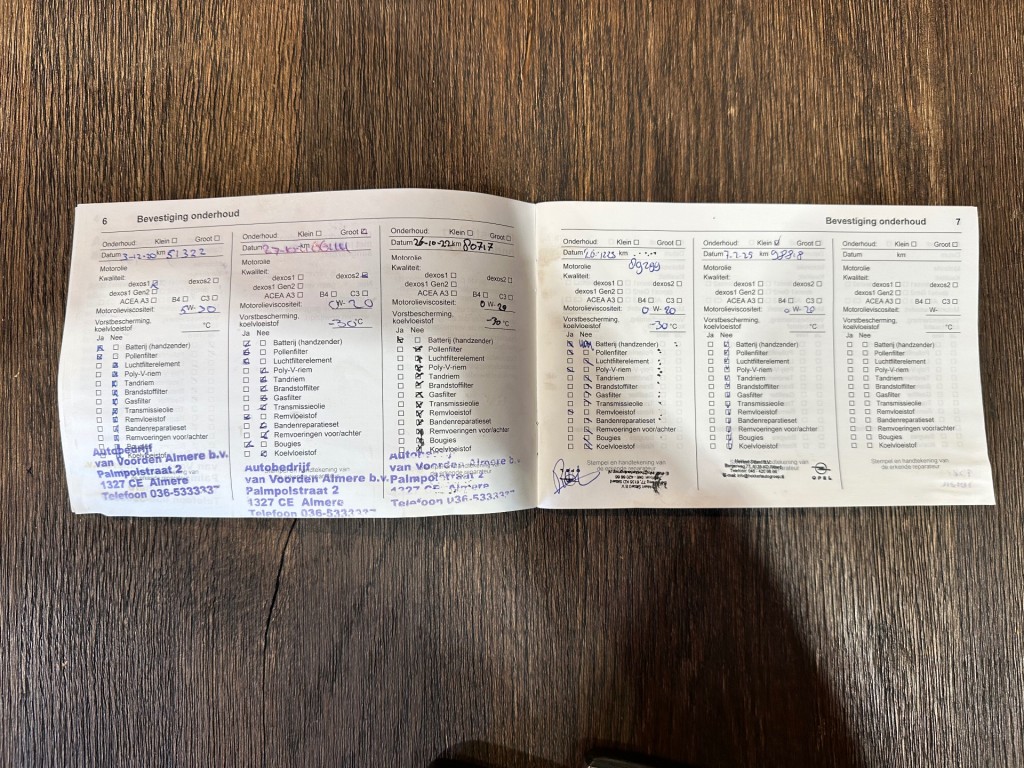 6 Bevestiging onderhoud
Onderhoud: Klein Groot
Datum km 51322
Motorolie
Kwaliteit:
dexos1 dexos2
dexos1 Gen2
ACEA A3 B4 C3
Motorolieviscositeit: 5 W- 30
Vorstbescherming,
koelvloeistof °C
Ja Nee
Batterij (handzender)
Pollenfilter
Luchtfilterelement
Poly-V-riem
Tandriem
Brandstoffilter
Gasfilter
Transmissieolie
Remvloeistof
Bandenreparatieset
Remvoeringen voor/achter
Bougies
Koelvloeistof
Autobedrijf
van Voorden Almere b.v.
Palmpolstraat 2
1327 CE Almere
Telefoon 036-5333
Onderhoud: Klein Groot
Datum km
Motorolie
Kwaliteit:
dexos1 dexos2
dexos1 Gen2
ACEA A3 B4 C3
Motorolieviscositeit: 0 W- 20
Vorstbescherming,
koelvloeistof -30 °C
Ja Nee
Batterij (handzender)
Pollenfilter
Luchtfilterelement
Poly-V-riem
Tandriem
Brandstoffilter
Gasfilter
Transmissieolie
Remvloeistof
Bandenreparatieset
Remvoeringen voor/achter
Bougies
Koelvloeistof
Autobedrijf
van Voorden Almere b.v.
Palmpolstraat 2
1327 CE Almere
Telefoon 036-5333
Onderhoud: Klein Groot
Datum 26-10-22 km 80717
Motorolie
Kwaliteit:
dexos1 dexos2
dexos1 Gen2
ACEA A3 B4 C3
Motorolieviscositeit: 0 W- 20
Vorstbescherming,
koelvloeistof -30 °C
Ja Nee
Batterij (handzender)
Pollenfilter
Luchtfilterelement
Poly-V-riem
Tandriem
Brandstoffilter
Gasfilter
Transmissieolie
Remvloeistof
Bandenreparatieset
Remvoeringen voor/achter
Bougies
Koelvloeistof
van Voorden Almere b.v.
Palmpolstraat 2
1327 CE Almere
Telefoon 036-5333
Bevestiging onderhoud 7
Onderhoud: Klein Groot
Datum km
Motorolie
Kwaliteit:
dexos1 dexos2
dexos1 Gen2
ACEA A3 B4 C3
Motorolieviscositeit: 0 W- 20
Vorstbescherming,
koelvloeistof -30 °C
Ja Nee
Batterij (handzender)
Pollenfilter
Luchtfilterelement
Poly-V-riem
Tandriem
Brandstoffilter
Gasfilter
Transmissieolie
Remvloeistof
Bandenreparatieset
Remvoeringen voor/achter
Bougies
Koelvloeistof
Stempel en handtekening van
de erkende reparateur
Onderhoud: Klein Groot
Datum 7.2.25 km
Motorolie
Kwaliteit:
dexos1 dexos2
dexos1 Gen2
ACEA A3 B4 C3
Motorolieviscositeit: 0 W- 20
Vorstbescherming,
koelvloeistof °C
Ja Nee
Batterij (handzender)
Pollenfilter
Luchtfilterelement
Poly-V-riem
Tandriem
Brandstoffilter
Gasfilter
Transmissieolie
Remvloeistof
Bandenreparatieset
Remvoeringen voor/achter
Bougies
Koelvloeistof
OPEL
Onderhoud: Klein Groot
Datum km
Motorolie
Kwaliteit:
dexos1 dexos2
dexos1 Gen2
ACEA A3 B4 C3
Motorolieviscositeit: W-
Vorstbescherming,
koelvloeistof °C
Ja Nee
Batterij (handzender)
Pollenfilter
Luchtfilterelement
Poly-V-riem
Tandriem
Brandstoffilter
Gasfilter
Transmissieolie
Remvloeistof
Bandenreparatieset
Remvoeringen voor/achter
Bougies
Koelvloeistof
Stempel en handtekening van
de erkende reparateur